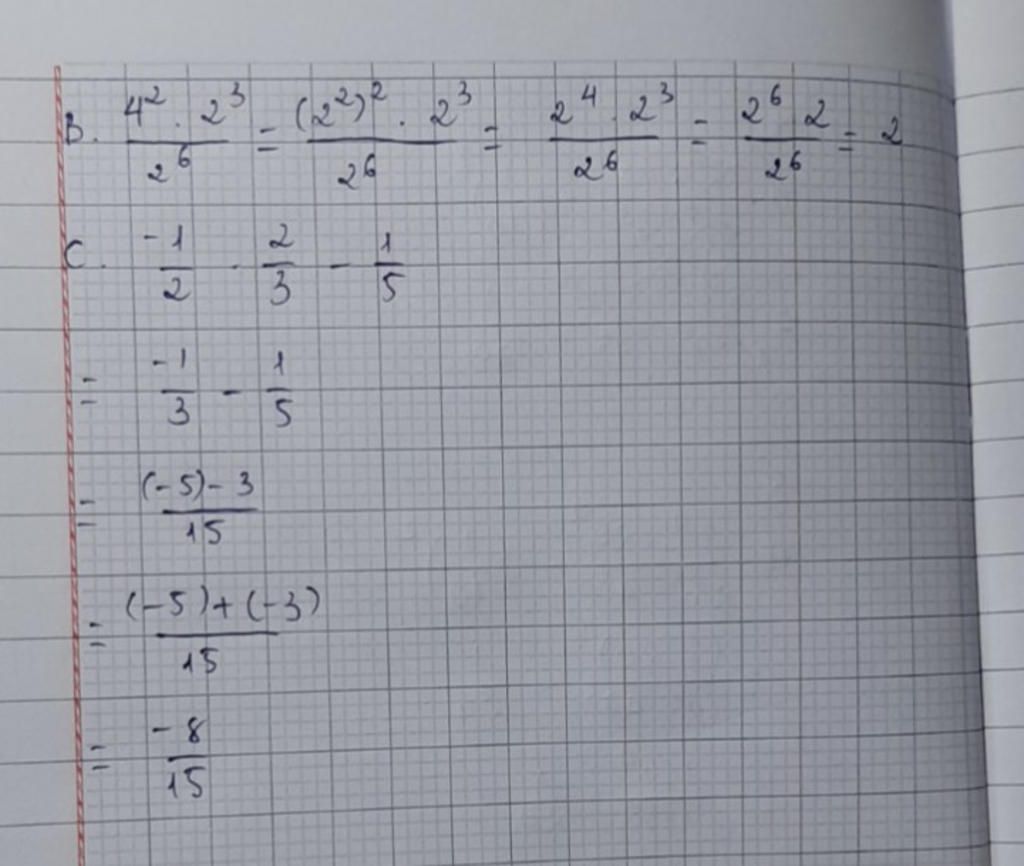 B. \frac{4^2 . 2^3}{2^6} = \frac{(2^2)^2 . 2^3}{2^6} = \frac{2^4 . 2^3}{2^6} = \frac{2^6 2}{2^6} = 2
C. \frac{-1}{2} . \frac{2}{3} - \frac{1}{5}
= \frac{-1}{3} - \frac{1}{5}
= \frac{(-5)-3}{15}
= \frac{(-5)+(-3)}{15}
= \frac{-8}{15}